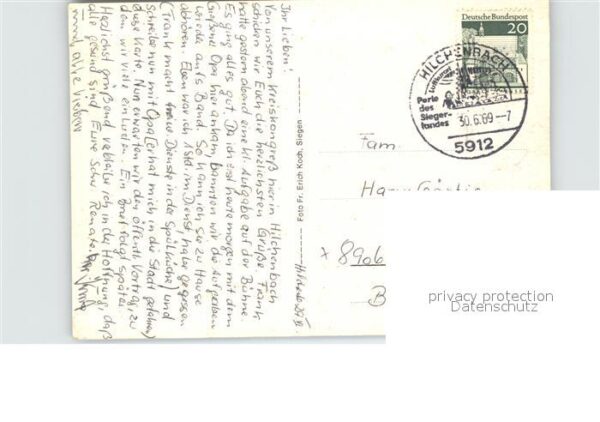 Ihr Lieben!
Von unserem Kreiskongreß hier in Hilchenbach
schicken wir Euch die herzlichsten Grüße. Frank
hatte gestern abend eine kl. Aufgabe auf der Bühne
Es ging alles gut. Da ich erst heute morgen mit dem
Großene Opa hier ankam, bannten wir die Aufgaben
wieder aufs Band. So kann ich sie zu Hause
abhören. Eben war ich 1 Std. im Dienst habe gegessen
(Frank macht Dienste in der Spülküche) und
schreibe nun mit Opa (er hat mich in die Stadt gefahren)
diese Karte. Nun erwarten wir den öffentl. Vortrag, zu
dem wir viele einluden. Ein Brief folgt später.
Herzlichst grüßend verbleibe ich in der Hoffnung, daß
alle gesund sind Eure Renate
und alle Lieben
Foto Fr. Erich Koch, Siegen
Deutsche Bundespost
20
HILCHENBACH
Luftkurort
Perle
des
Sieger-
landes
30.6.69 --7
5912
Fam.
8906
privacy protection
Datenschutz